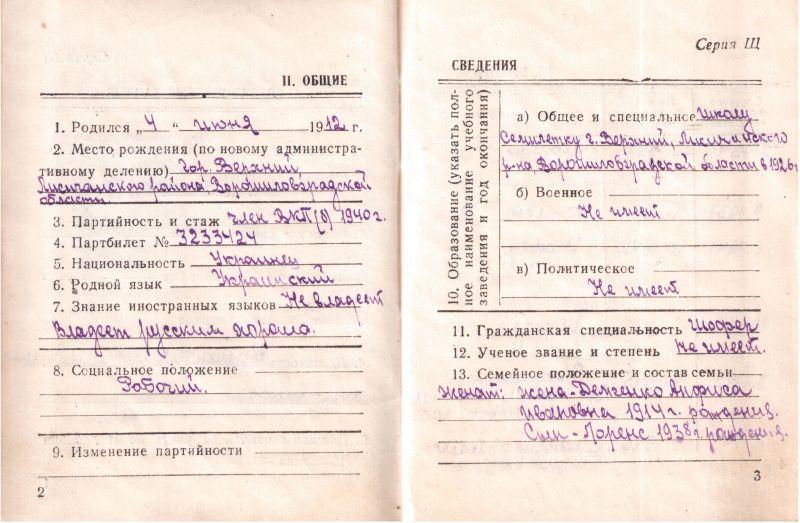 II. ОБЩИЕ
1. Родился „4“ июня 1912 г.
2. Место рождения (по новому административному делению) гор. Верхний,
Лисичанского района Ворошиловградской
области.
3. Партийность и стаж член ВКП(б) 1940 г.
4. Партбилет № 3233424
5. Национальность Украинец
6. Родной язык Украинский
7. Знание иностранных языков Не владеет
Владеет русским хорошо.
8. Социальное положение
Рабочий.
9. Изменение партийности
2
Серия Щ
СВЕДЕНИЯ
10. Образование (указать полное наименование учебного заведения и год окончания)
а) Общее и специальное школу
Семилетку г. Верхний, Лисичанского
р-на Ворошиловградской области в 1926 г.
б) Военное
Не имеет
в) Политическое
Не имеет
11. Гражданская специальность Шофер
12. Ученое звание и степень Не имеет.
13. Семейное положение и состав семьи
женат: жена - Демченко
Ивановна 1914 г. рождения.
Сын - Лоренс 1938 г. рождения.
3